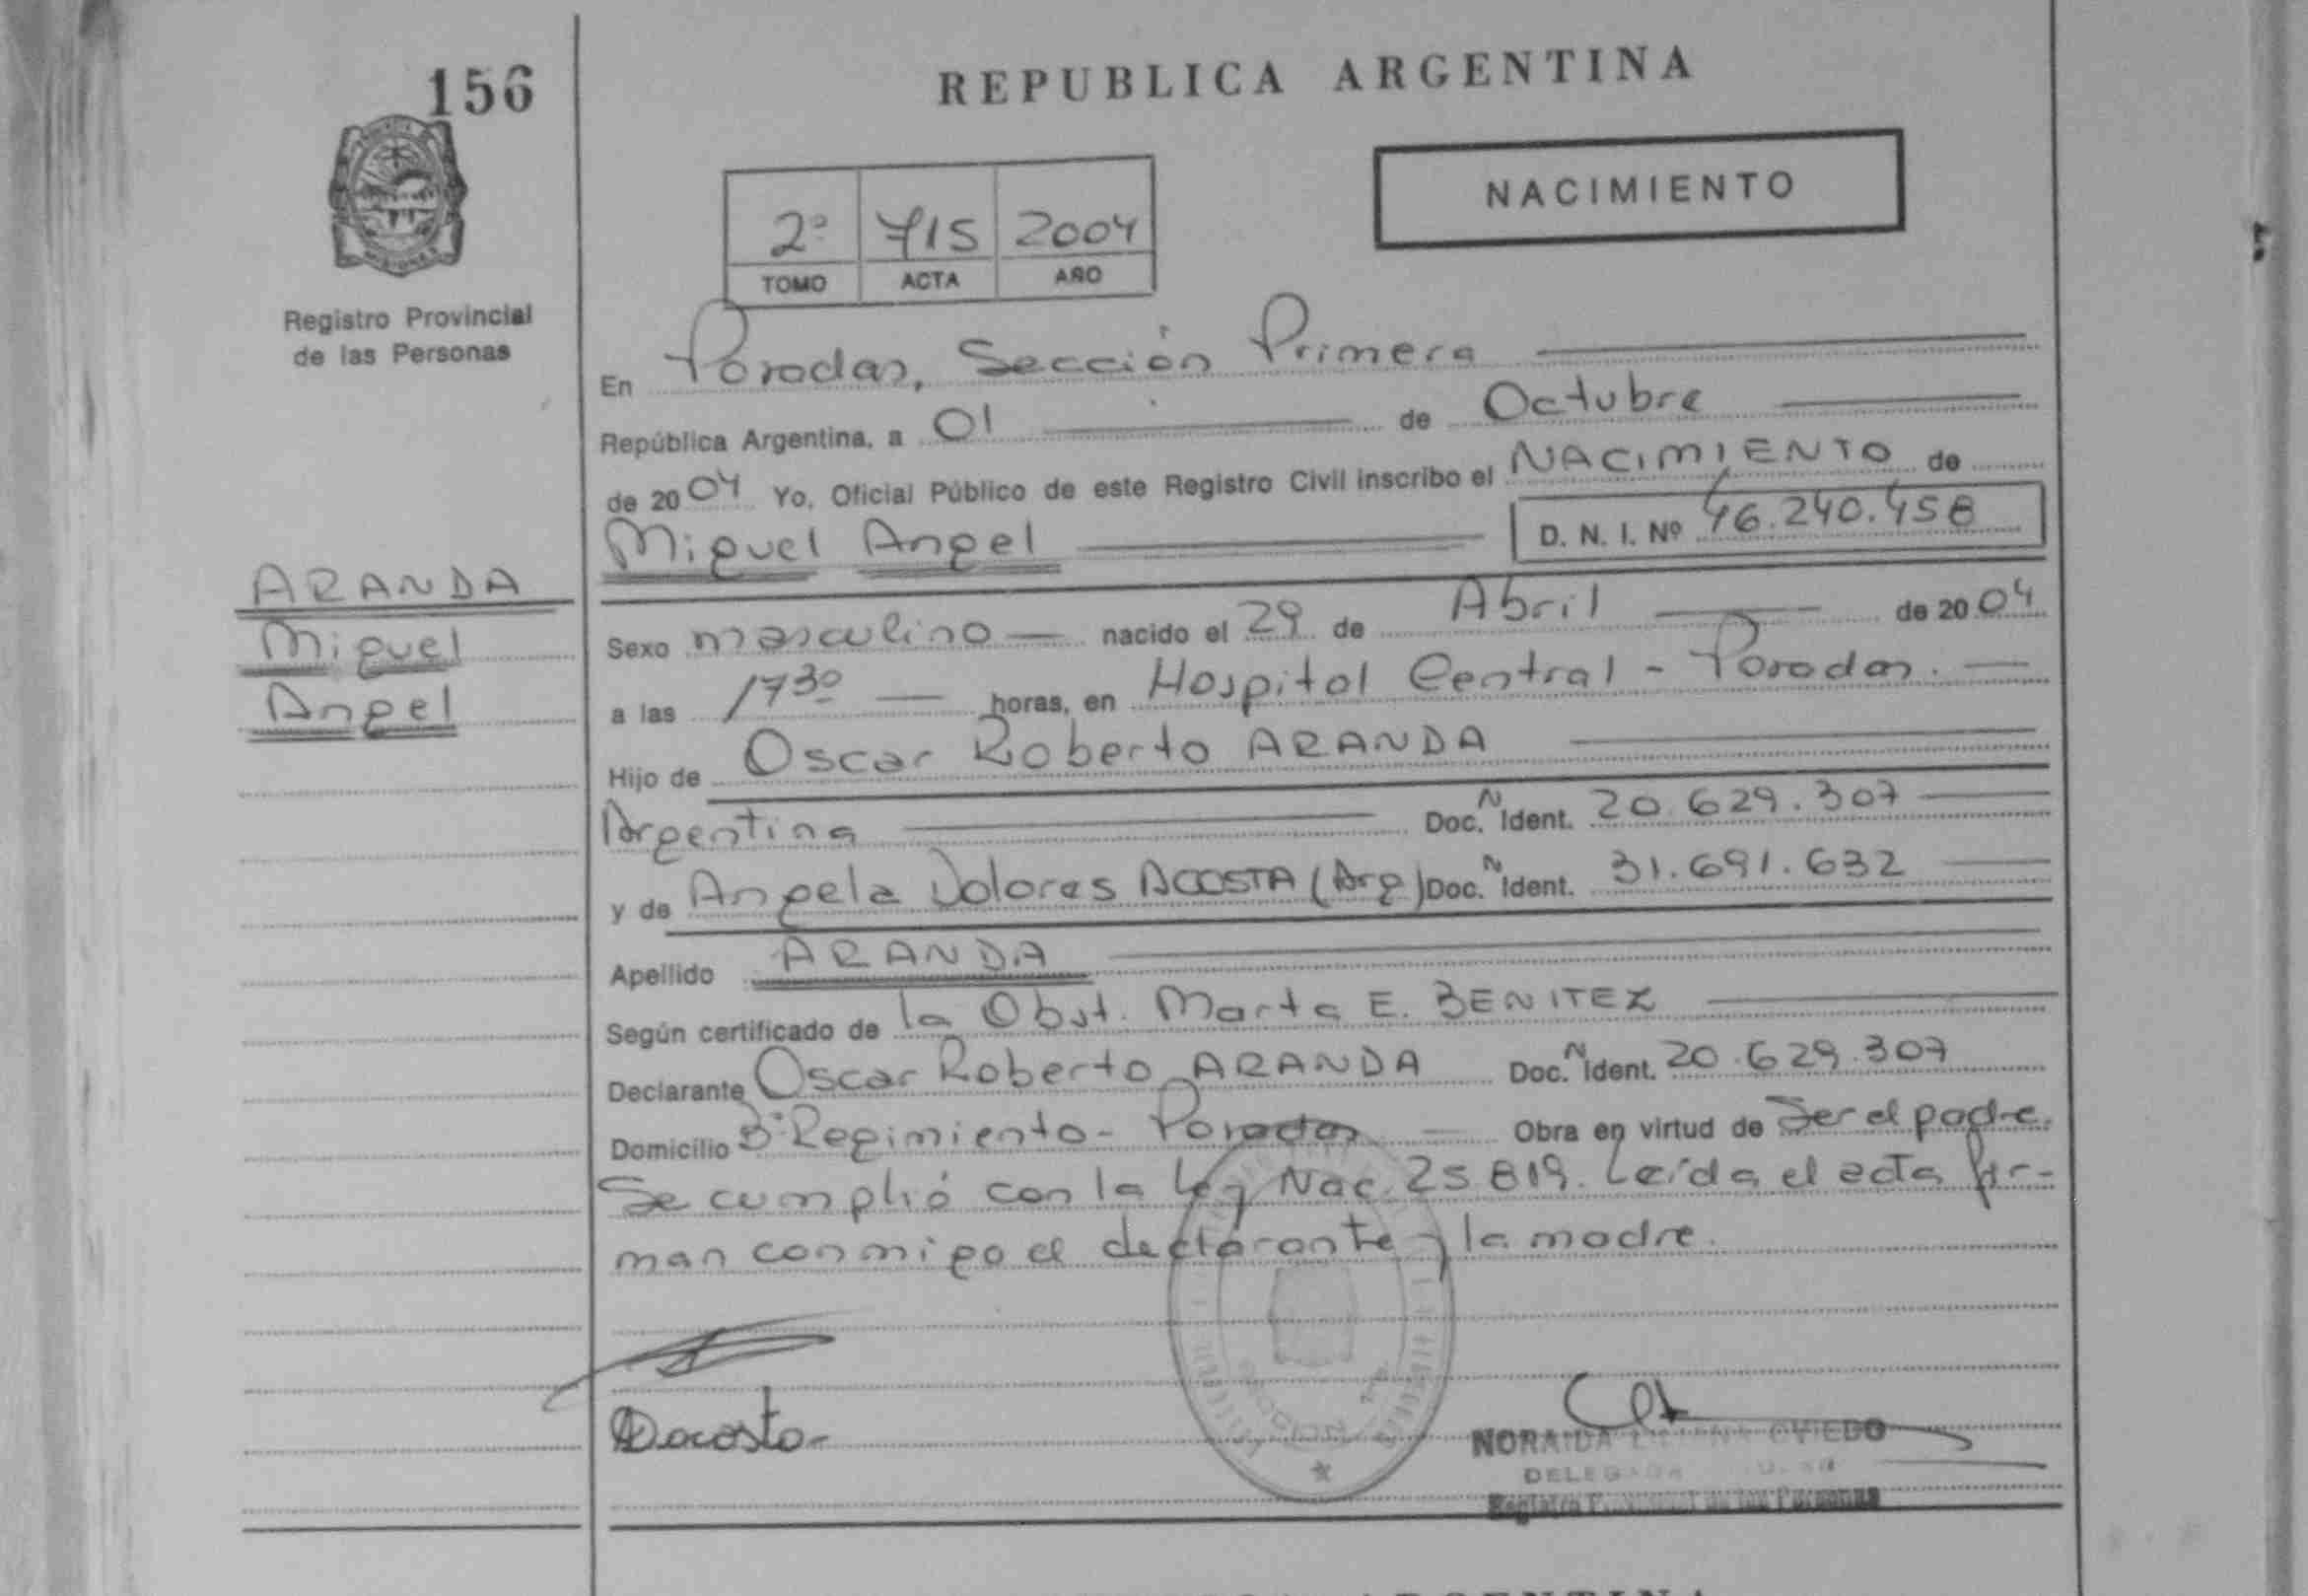 156
REPUBLICA ARGENTINA
NACIMIENTO
2º 715 2004
TOMO ACTA AÑO
Registro Provincial
de las Personas
En Posadas, Sección Primera
República Argentina, a 01 de Octubre
de 2004 Yo, Oficial Público de este Registro Civil inscribo el NACIMIENTO de
Miguel Angel D. N. I. Nº 46.240.458
ARANDA
Miguel
Angel
Sexo masculino nacido el 29 de Abril de 2004
a las 17³⁰ horas, en Hospital Central - Posadas.
Hijo de Oscar Roberto ARANDA
Argentina Doc. N Ident. 20.629.307
y de Angela Dolores ACOSTA (Arg) Doc. N Ident. 31.691.632
Apellido ARANDA
Según certificado de la Obst. Marta E. BENITEZ
Declarante Oscar Roberto ARANDA Doc. N Ident. 20.629.307
Domicilio Bº Regimiento - Posadas Obra en virtud de Ser el padre.
Se cumplió con la Ley Nac. 25.819. Leída el acta fir-
man conmigo el declarante y la madre.
Dacosta
NORAIDA OVIEDO
Registro Provincial de las Personas